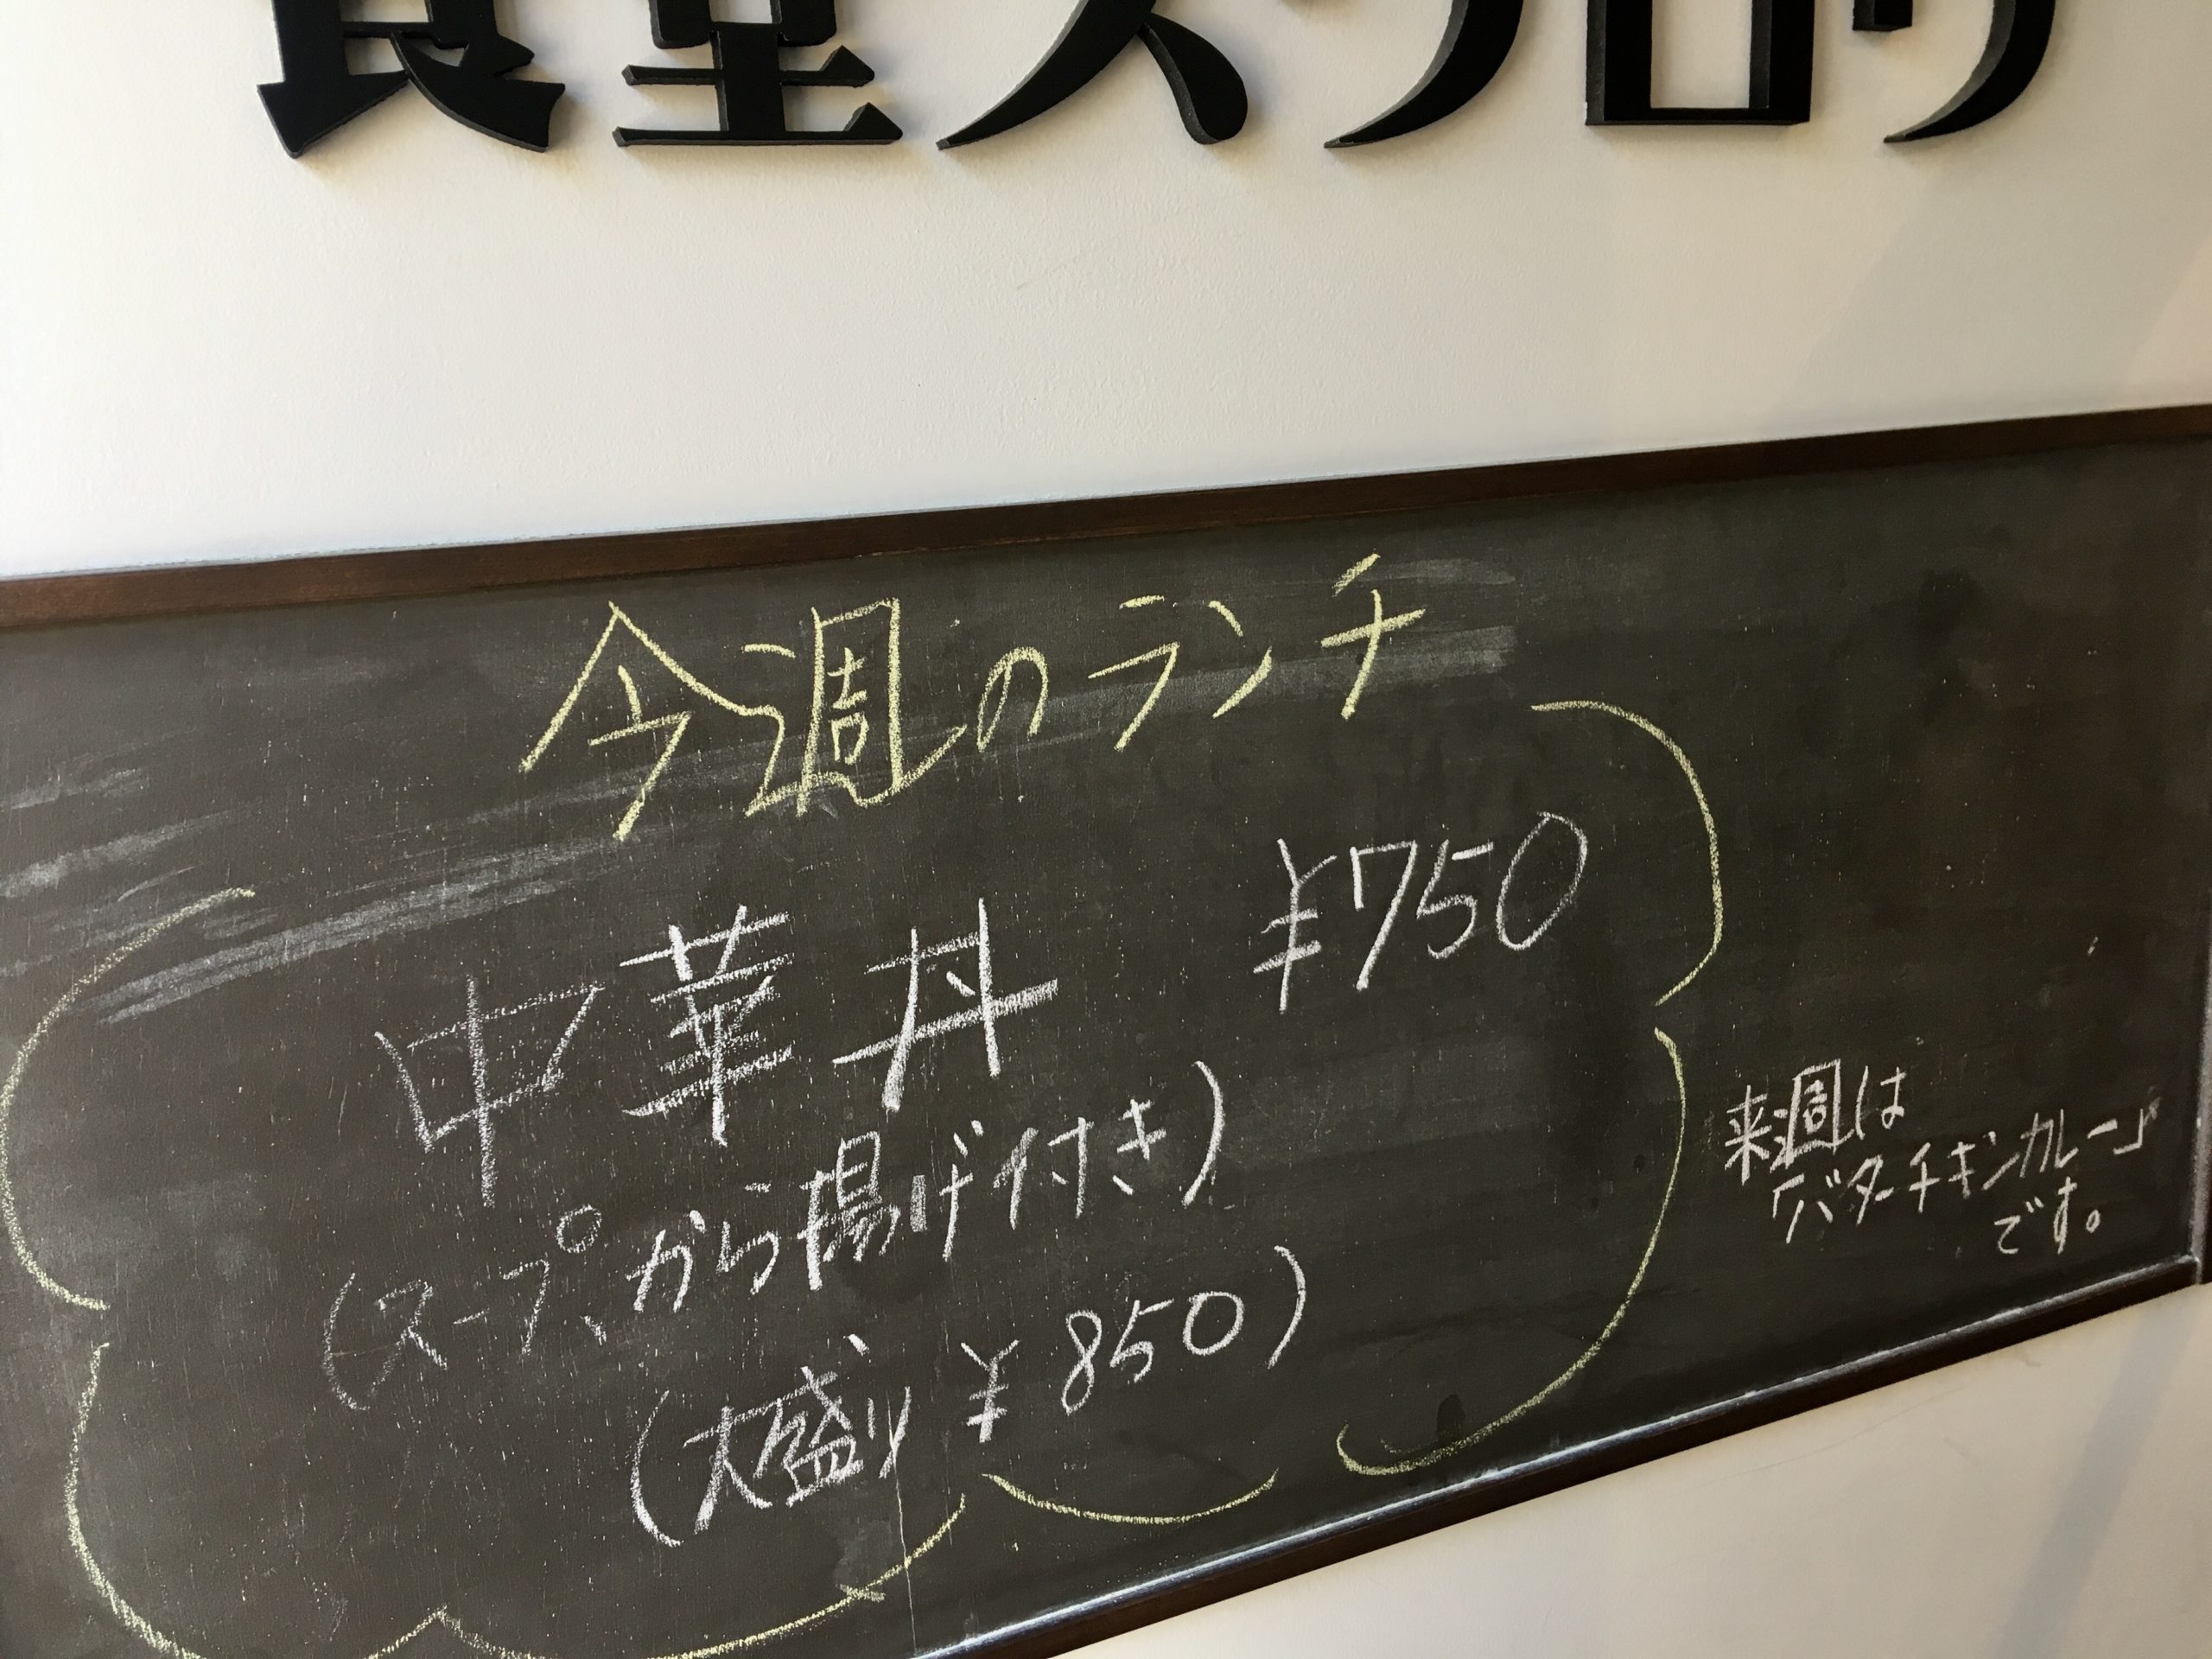 今週のランチ
中華丼 ¥750
(スープ、から揚げ付き)
(大盛り ¥850)
来週は
「バターチキンカレー」
です。